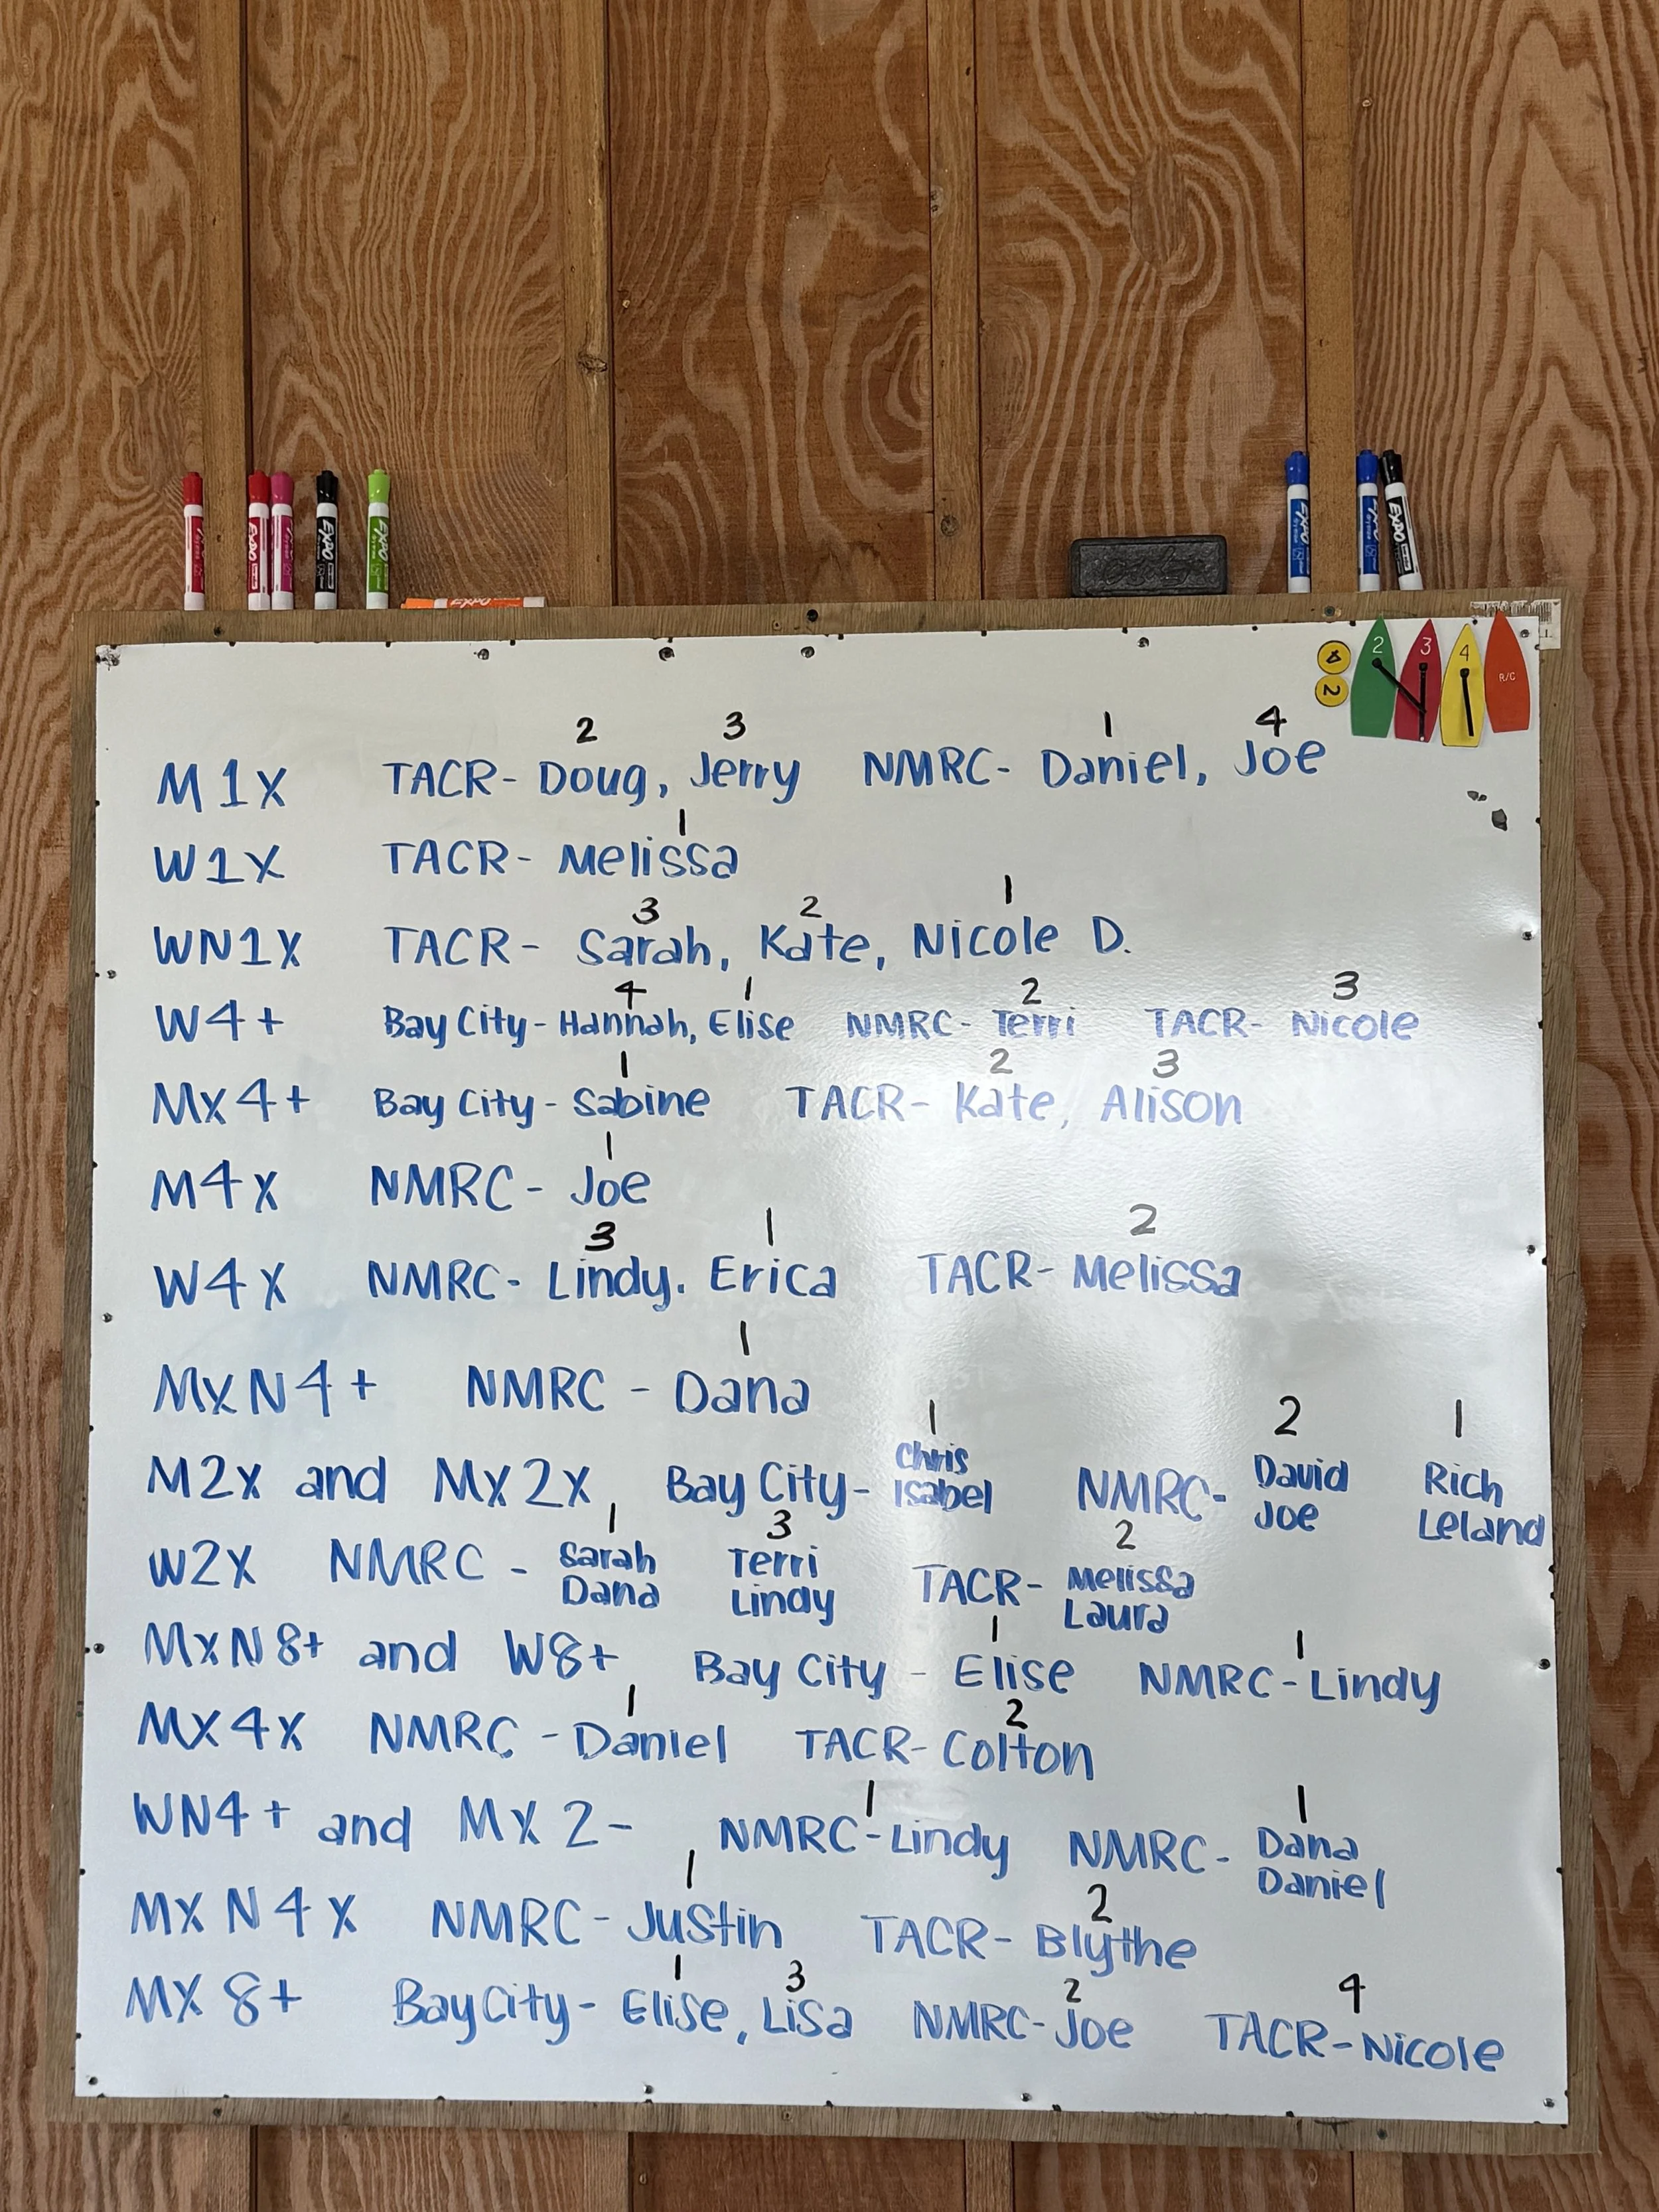 EXPO
EXPO
EXPO
EXPO
EXPO
EXPO
2 3 4 R/C
4
2
2 3 1 4
M1X TACR- Doug, Jerry NMRC- Daniel, Joe
1
W1X TACR- Melissa
3 2 1
WN1X TACR- Sarah, Kate, Nicole D.
4 1 2 3
W4+ Bay City- Hannah, Elise NMRC- Terri TACR- Nicole
1 2 3
MX4+ Bay City- Sabine TACR- Kate, Alison
1
M4X NMRC- Joe
3 1 2
W4X NMRC- Lindy. Erica TACR- Melissa
1
MXN4+ NMRC - Dana
1 2 1
M2X and MX2X Bay City- Chris Isabel NMRC- David Joe Rich Leland
1 3 2
W2X NMRC - Sarah Dana Terri Lindy TACR- Melissa Laura
1 1
MXN8+ and W8+ Bay City - Elise NMRC-Lindy
1 2
MX4X NMRC -Daniel TACR- Colton
1 1
WN4+ and MX2- NMRC-Lindy NMRC- Dana Daniel
1 2
MXN4X NMRC- Justin TACR- Blythe
1 3 2 4
MX8+ Bay City- Elise, Lisa NMRC- Joe TACR-Nicole